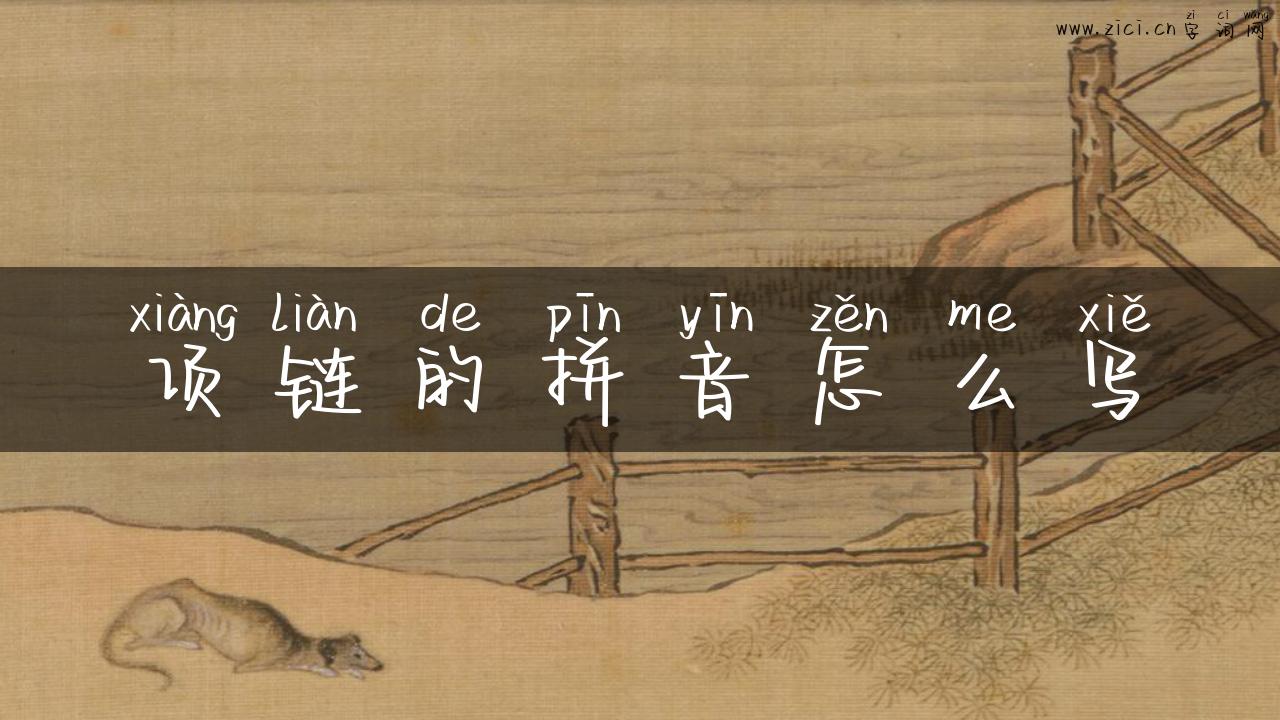 zi ci wang
www.zici.cn 字词网
xiàng liàn de pīn yīn zěn me xiě
项链的拼音怎么写